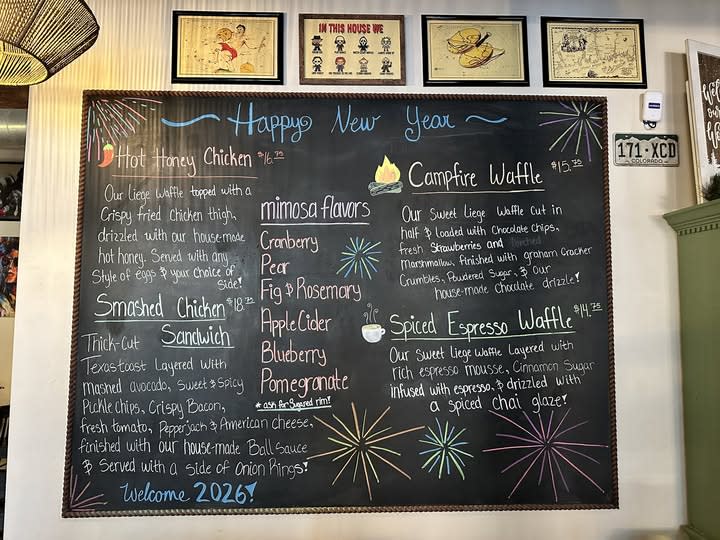 IN THIS HOUSE WE
Happy New Year
Hot Honey Chicken $16.75
Our Liege Waffle topped with a
Crispy fried Chicken thigh,
drizzled with our house-made
hot honey. Served with any
Style of eggs & your choice of
Side!
Smashed Chicken $18.75
Sandwich
Thick-Cut
Texas toast Layered with
mashed avocado, Sweet & Spicy
Pickle chips, Crispy Bacon,
fresh tomato, Pepperjack & American cheese,
finished with our house-made Ball Sauce
& Served with a side of Onion Rings!
Welcome 2026!
mimosa flavors
Cranberry
Pear
Fig & Rosemary
Apple Cider
Blueberry
Pomegranate
* ask for Sugared rim!
Campfire Waffle $15.75
Our Sweet Liege Waffle Cut in
half & loaded with Chocolate Chips,
fresh Strawberries and Torched
Marshmallow, finished with graham Cracker
Crumbles, Powdered Sugar, & our
house-made chocolate drizzle!
Spiced Espresso Waffle $14.75
Our Sweet Liege Waffle Layered with
rich espresso mousse, Cinnamon Sugar
infused with espresso, & drizzled with
a spiced chai glaze!
171·XCD
COLORADO